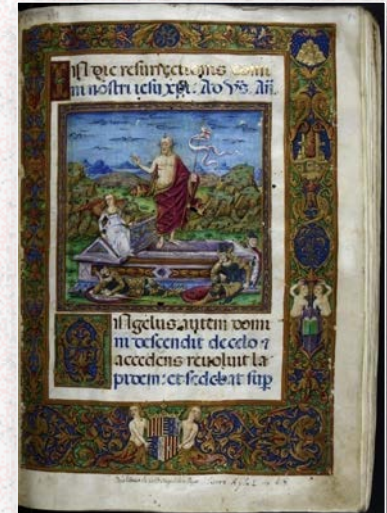 In die resurrectionis domi
ni nostri iesu xpi. Ad Vs. Añ.
Angelus autem domi
ni descendit de celo ⁊
accedens reuoluit la
pidem: et sedebat sup